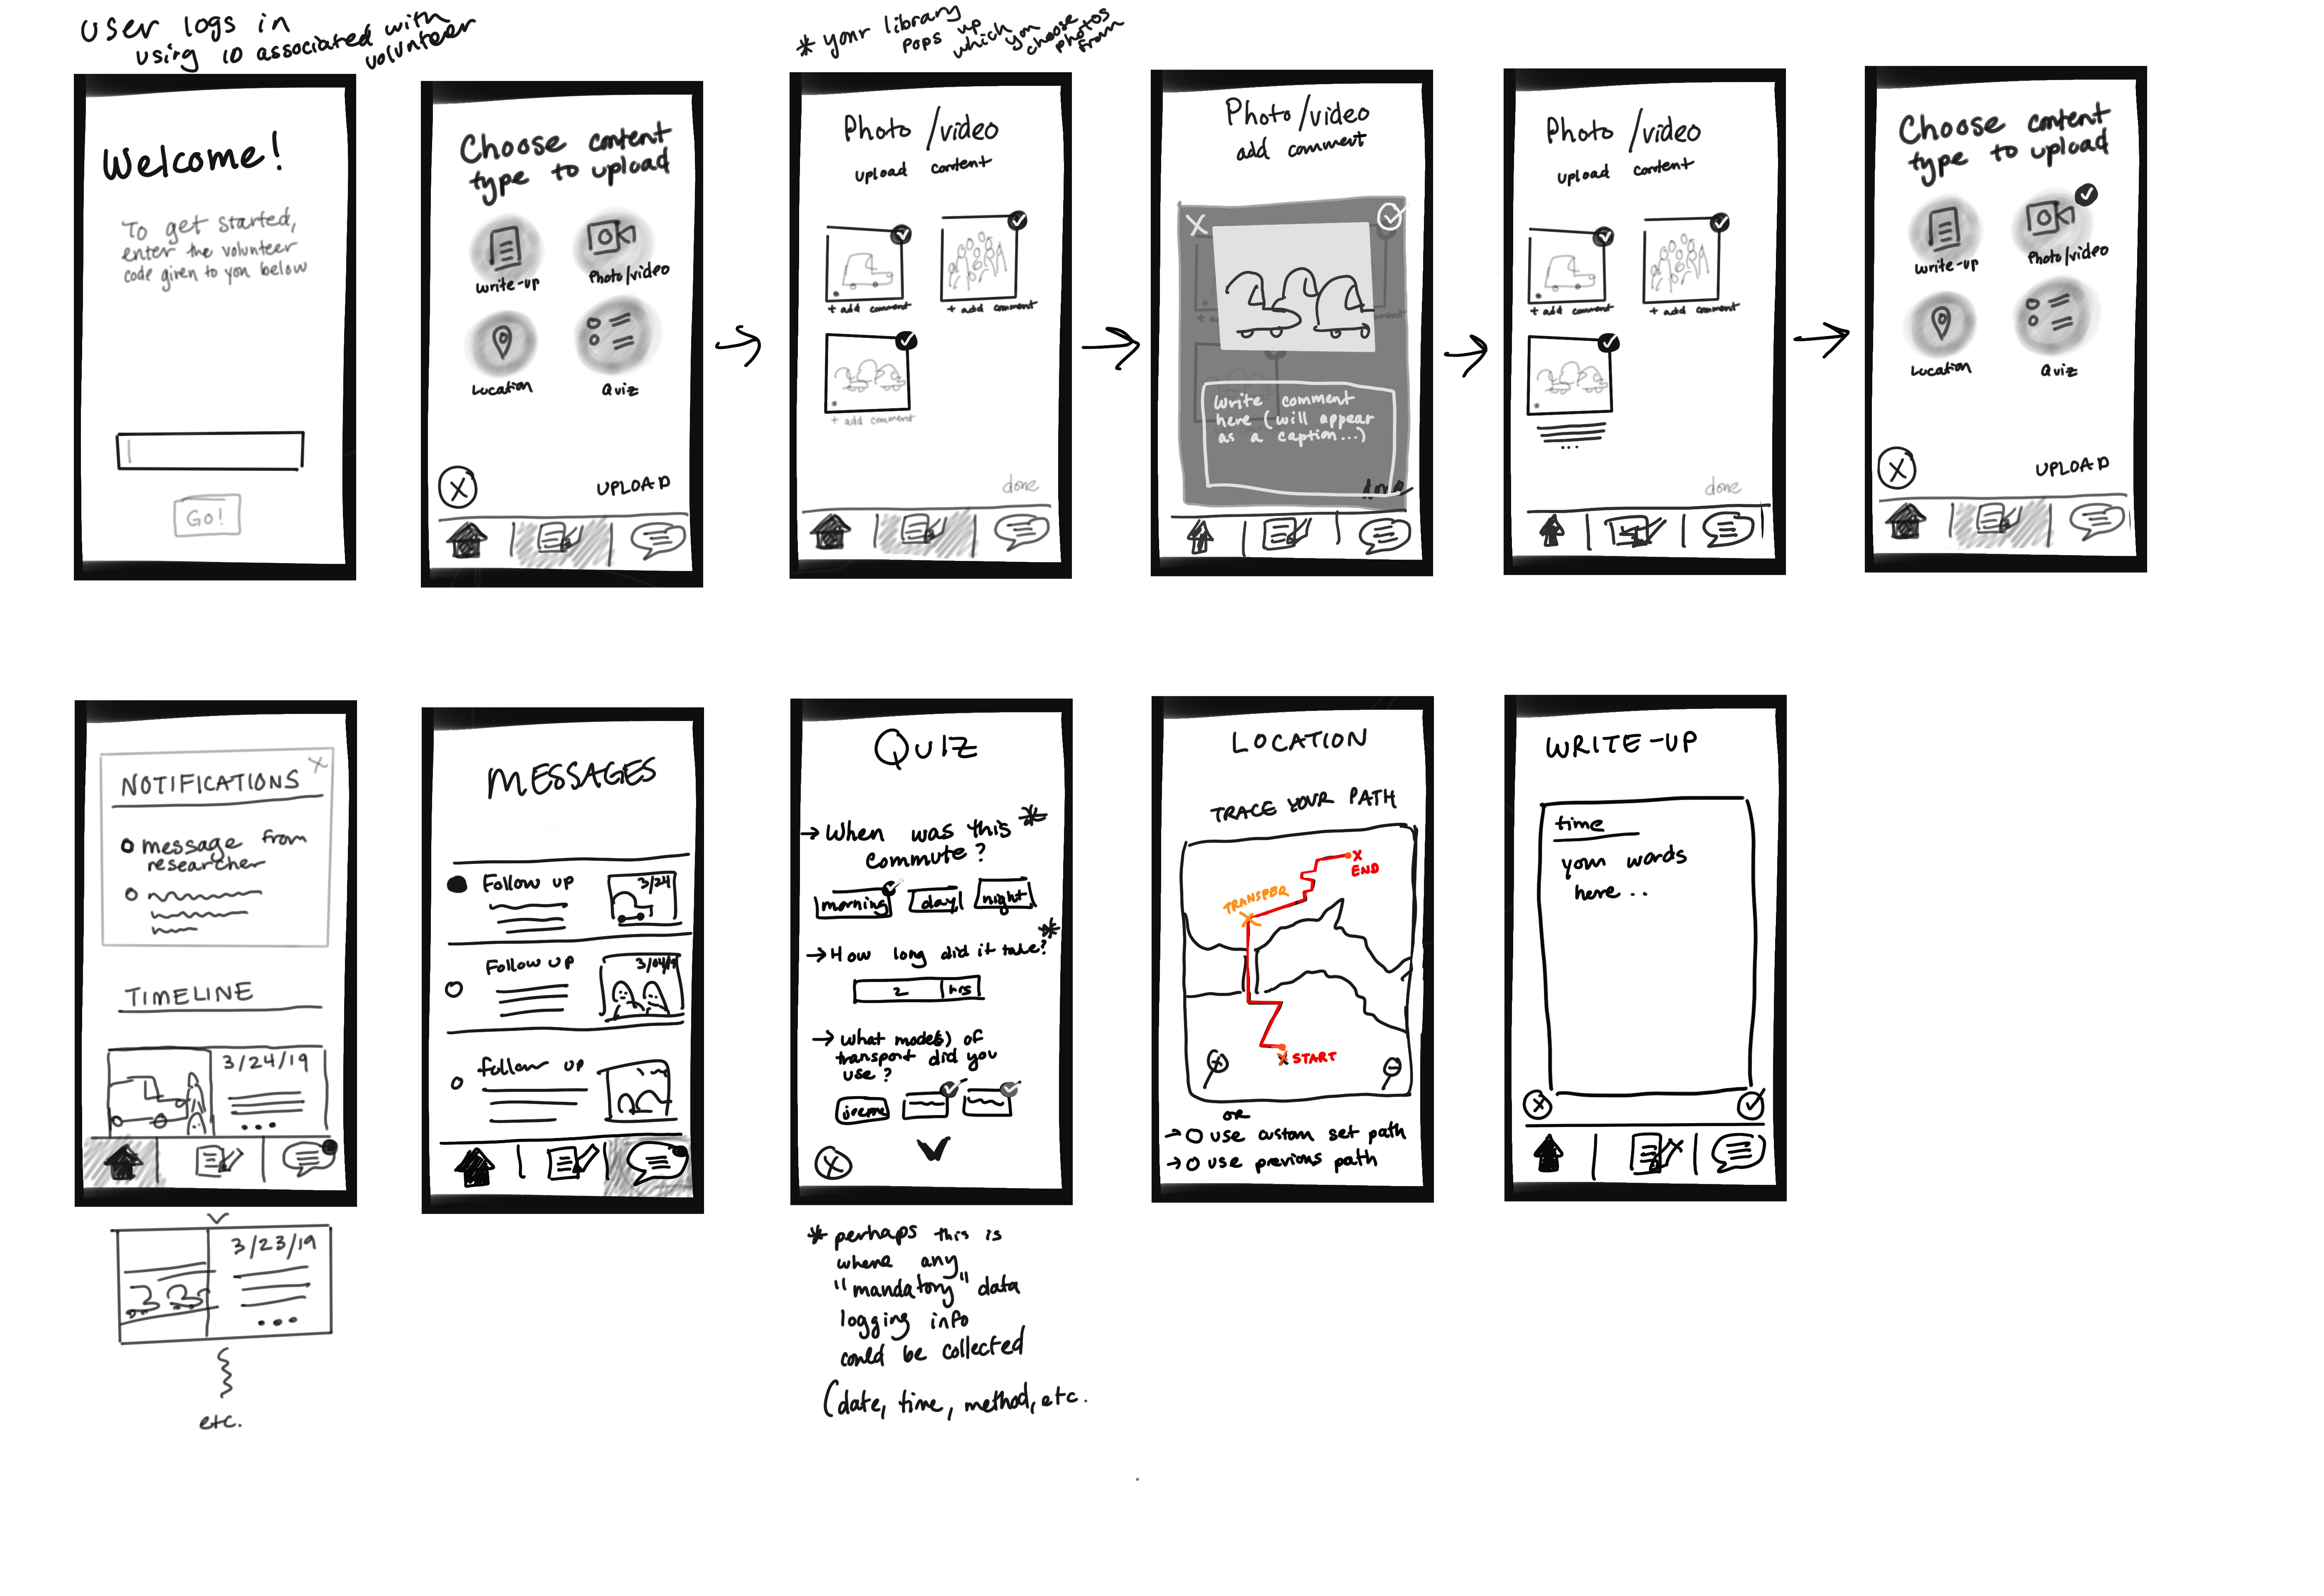 user logs in
using ID associated with
volunteer
Welcome!
To get started,
enter the volunteer
code given to you below
Go!
Choose content
type to upload
write-up
Photo/video
Location
Quiz
X
UPLOAD
* your library
pops up
which you
choose
photos
from
Photo/video
upload content
+ add comment
+ add comment
+ add comment
done
Photo/video
add comment
X
write comment
here (will appear
as a caption...)
done
Photo/video
upload content
+ add comment
+ add comment
...
done
Choose content
type to upload
write-up
Photo/video
Location
Quiz
X
UPLOAD
NOTIFICATIONS
X
message from
researcher
TIMELINE
3/24/19
...
3/23/19
...
etc.
MESSAGES
Follow up
3/24
Follow up
Follow up
QUIZ
→ When was this *
commute?
morning
day
night
→ How long did it take? *
2
hrs
→ what mode(s) of
transport did you
use?
X
* perhaps this is
where any
"mandatory" data
logging info
could be collected
(date, time, method, etc.
LOCATION
TRACE YOUR PATH
X
END
TRANSFER
X
X START
OR
→ use custom set path
→ use previous path
WRITE-UP
time
your words
here...
X